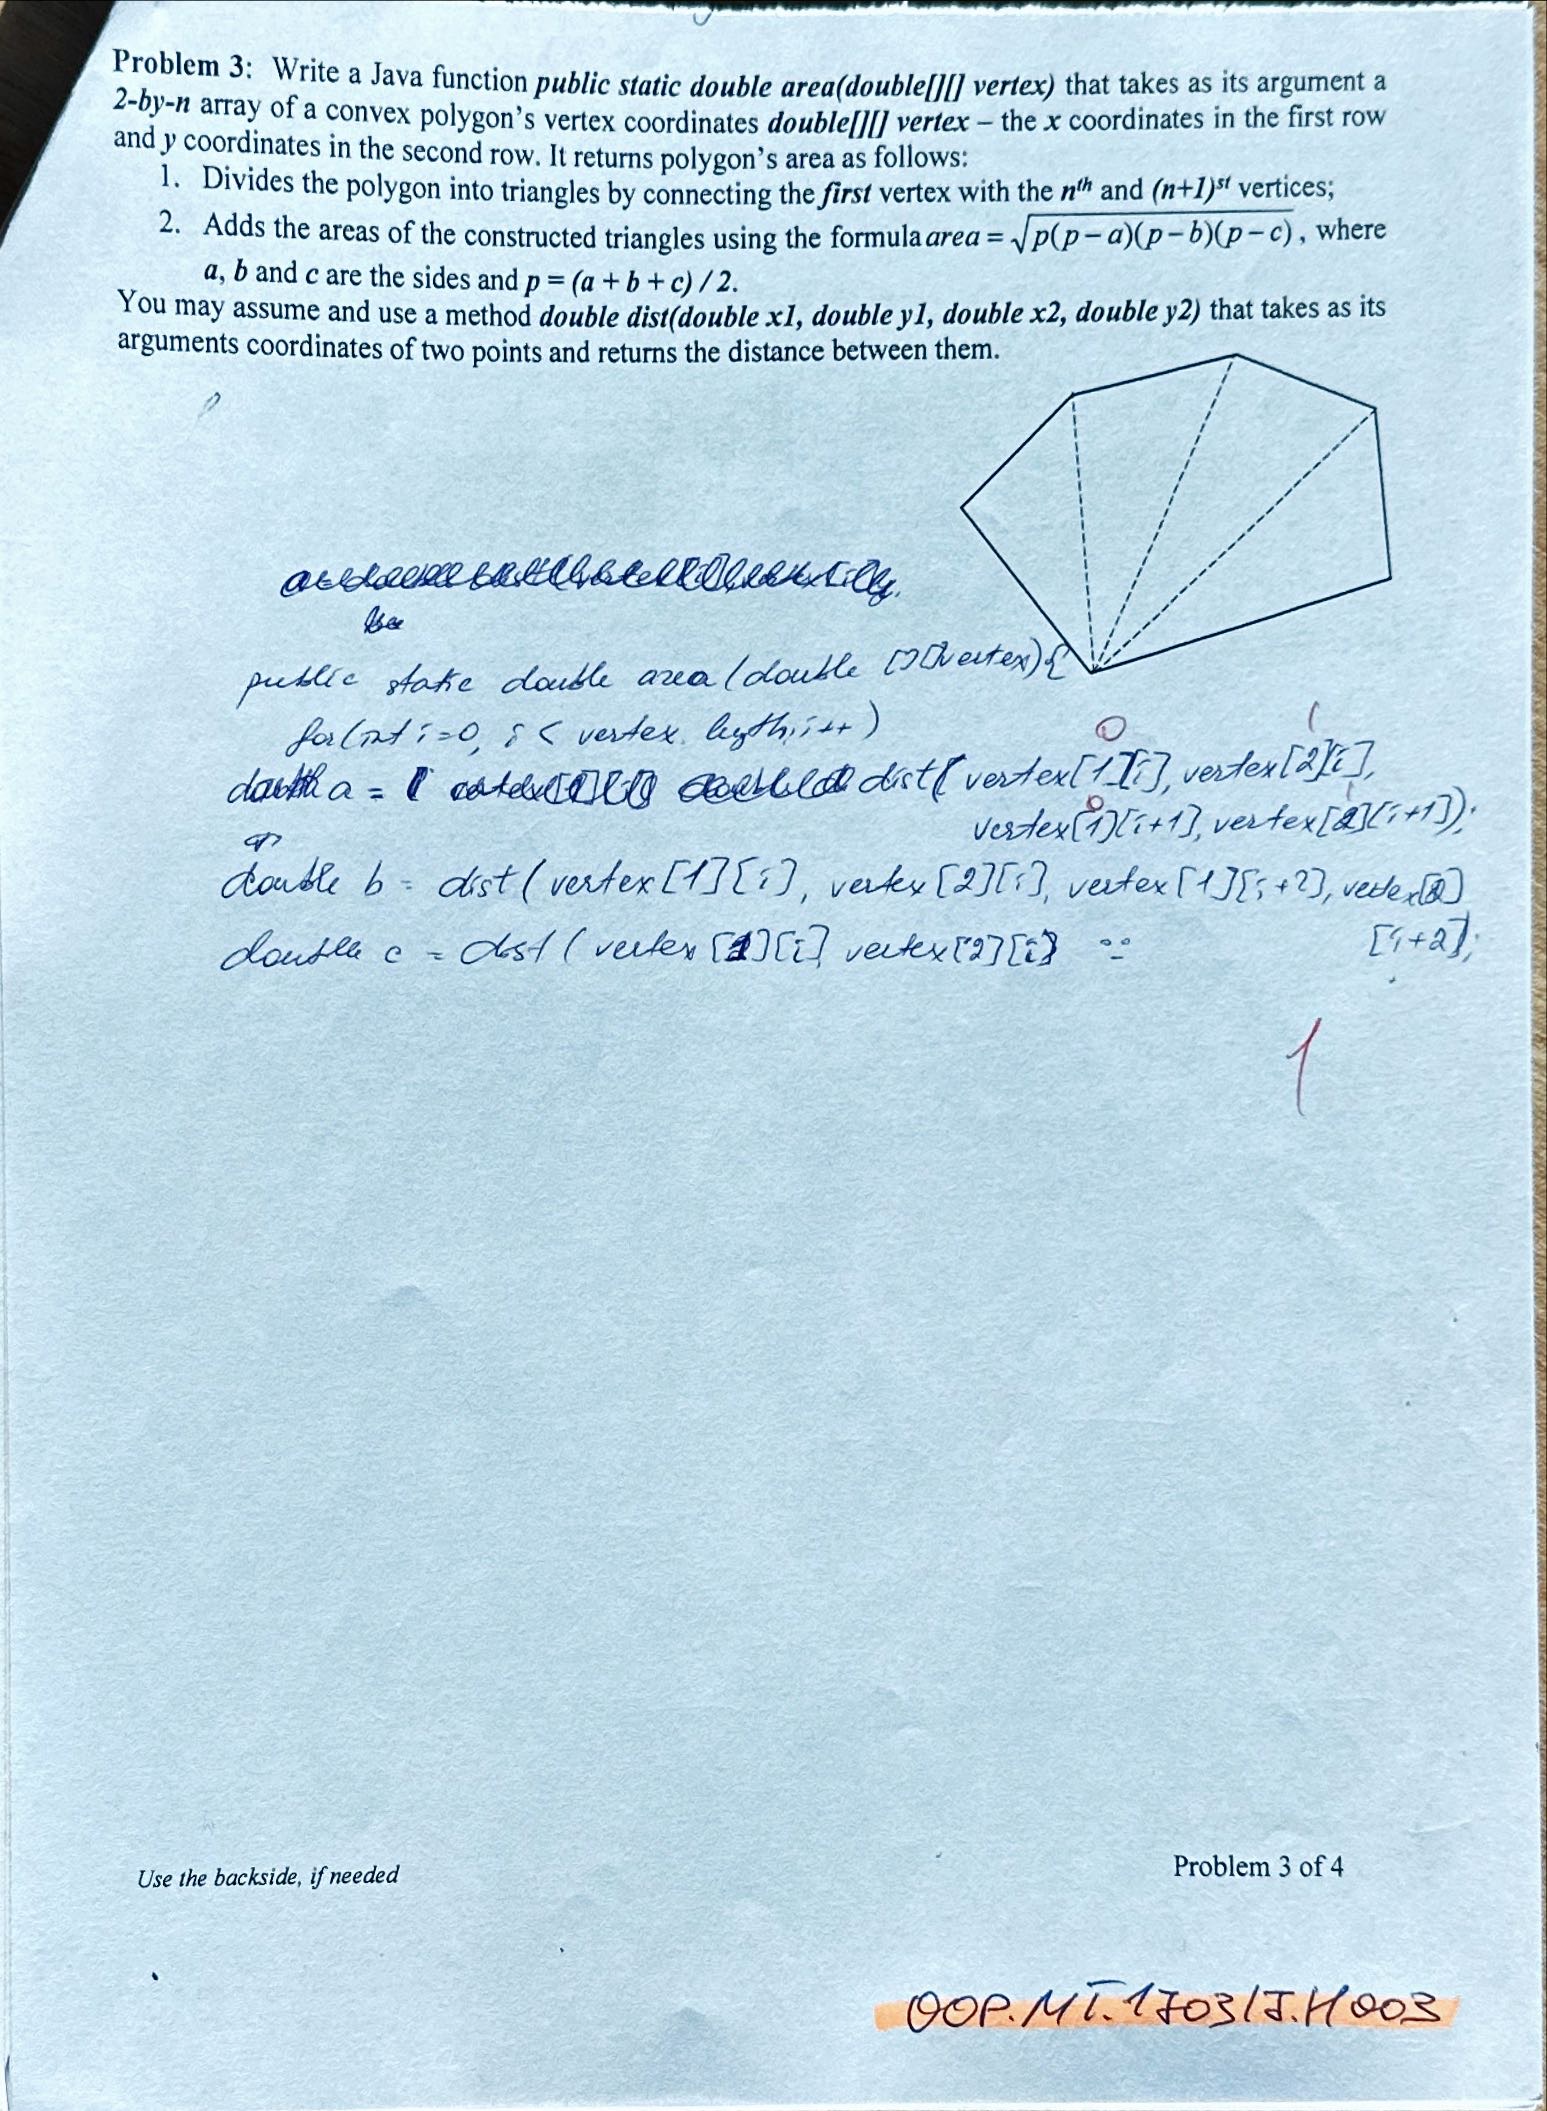 Problem 3: Write a Java function public static double area(double[][] vertex) that takes as its argument a
2-by-n array of a convex polygon's vertex coordinates double[][] vertex – the x coordinates in the first row
and y coordinates in the second row. It returns polygon's area as follows:
1. Divides the polygon into triangles by connecting the first vertex with the nth and (n+1)st vertices;
2. Adds the areas of the constructed triangles using the formula area = √p(p – a)(p – b)(p – c) , where
a, b and c are the sides and p = (a + b + c) / 2.
You may assume and use a method double dist(double x1, double y1, double x2, double y2) that takes as its
arguments coordinates of two points and returns the distance between them.
public static double area (double [][]vertex){
for(int i=0, i < vertex. legth, i++)
0 1
double a = dist( vertex[1][i], vertex[2][i],
0 1
vertex[1][i+1], vertex[2][i+1]);
double b = dist ( vertex[1][i], vertex[2][i], vertex[1][i+2], vertex[2]
[i+2];
double c = dist ( vertex [1][i] vertex[2][i]
1
Use the backside, if needed
Problem 3 of 4
OOP.MT.170317.H003